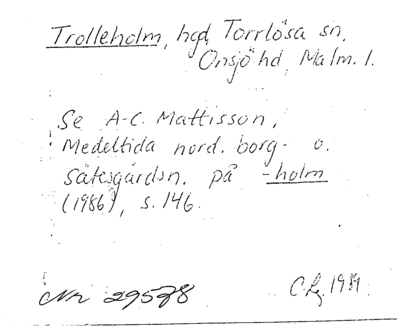 Trolleholm, hgd, Torrlösa sn,
Onsjö hd, Malm. l.
Se A-C. Mattisson,
Medeltida nord. borg- o.
Sätesgårdsn. på -holm
(1986), s. 146.
Nr 29578
1989